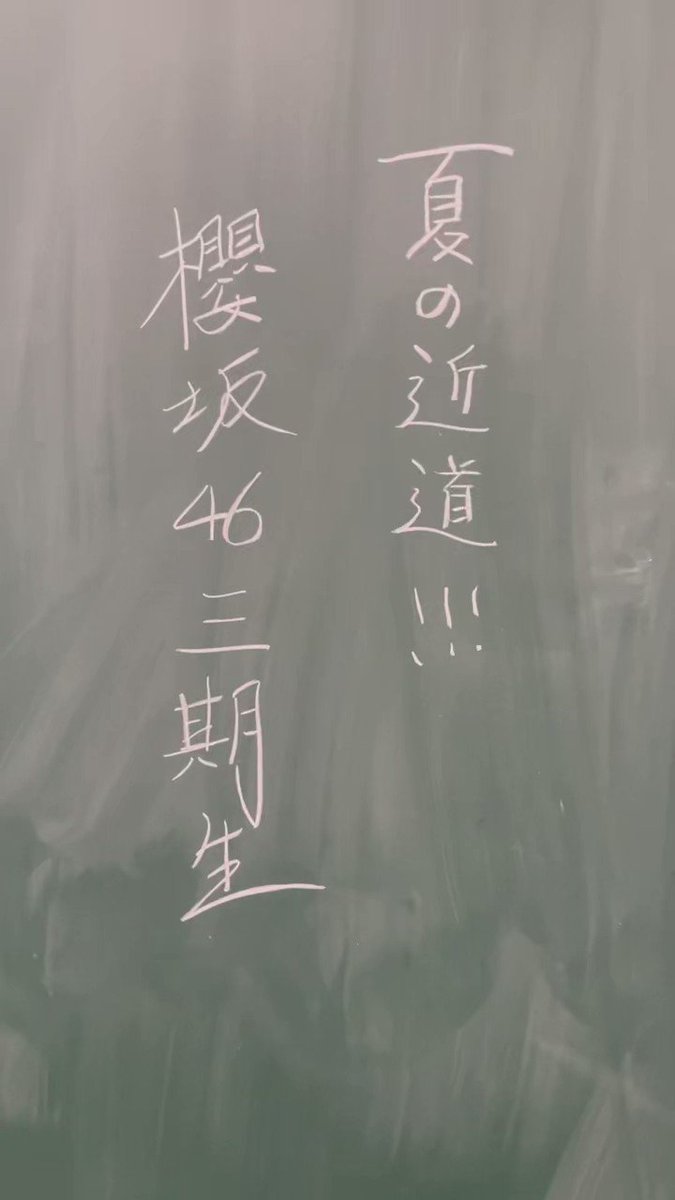 夏の近道!!!
櫻坂46三期生